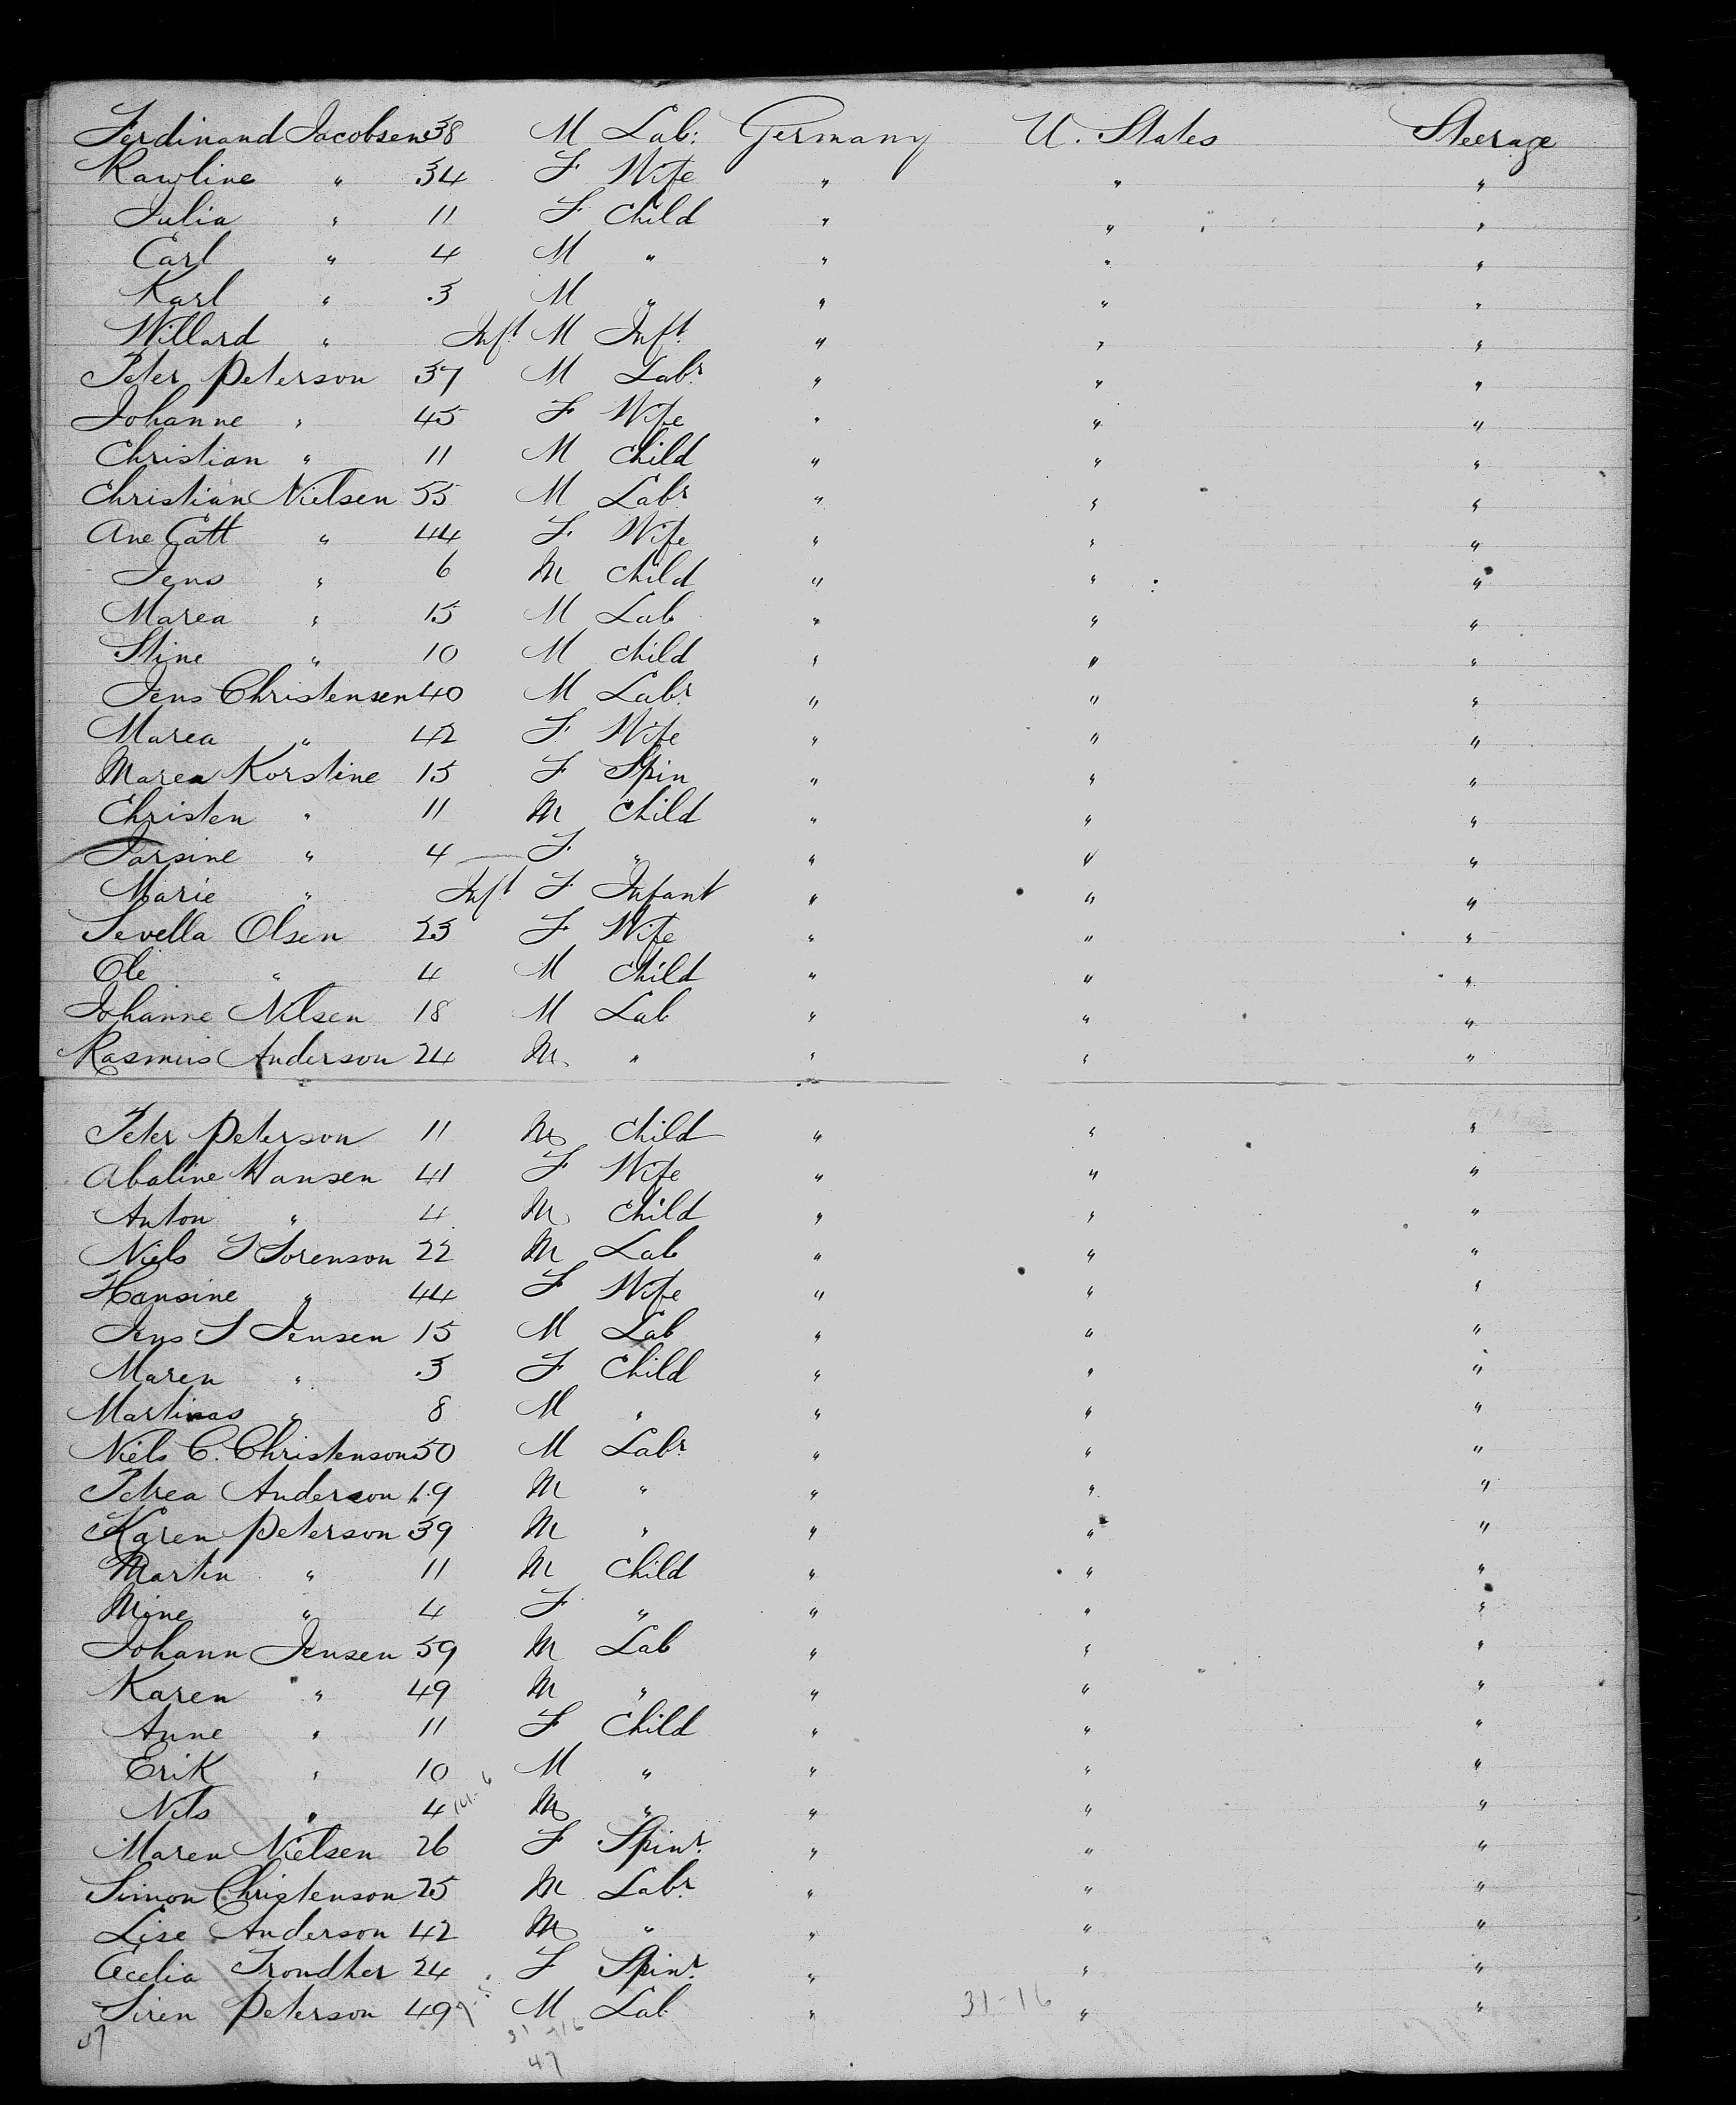 Ferdinand Jacobsen 38 M Lab: Germany U. States Steerage
Rawline " 34 F Wife " " "
Julia " 11 F Child " " "
Earl " 4 M " " " "
Karl " 3 M " " " "
Willard " Inft M Inft " " "
Peter Peterson 37 M Labr " " "
Johanne " 45 F Wife " " "
Christian " 11 M Child " " "
Christian Nielsen 55 M Labr " " "
Ane Catt " 44 F Wife " " "
Jens " 6 M Child " " "
Marea " 15 M Lab " " "
Stine " 10 M Child " " "
Jens Christensen 40 M Labr " " "
Marea " 42 F Wife " " "
Marea Korstine 15 F Spin " " "
Christen " 11 M Child " " "
Jarsine " 4 F " " " "
Marie " Inft F Infant " " "
Sevella Olsen 23 F Wife " " "
Ole " 4 M Child " " "
Johanne Nilsen 18 M Lab " " "
Rasmus Anderson 24 M " " " "
Peter Peterson 11 M Child " " "
Abaline Hansen 41 F Wife " " "
Anton " 4 M Child " " "
Niels S Sorenson 22 M Lab " " "
Hansine " 44 F Wife " " "
Jens S Jensen 15 M Lab " " "
Maren " 3 F Child " " "
Martinas " 8 M " " " "
Niels C. Christenson 50 M Labr " " "
Petrea Anderson 19 M " " " "
Karen Peterson 39 M " " " "
Martin " 11 M Child " " "
Mine " 4 F " " " "
Johann Jensen 59 M Lab " " "
Karen " 49 M " " " "
Anne " 11 F Child " " "
Erik " 10 M " " " "
Nils " 4 M " " " "
Maren Nielsen 26 F Spinr " " "
Simon Christenson 25 M Labr " " "
Lise Anderson 42 M " " " "
Cecelia Trondher 24 F Spinr " " "
Siren Peterson 49 M Lab " 31-16 " "
47 31-16
47